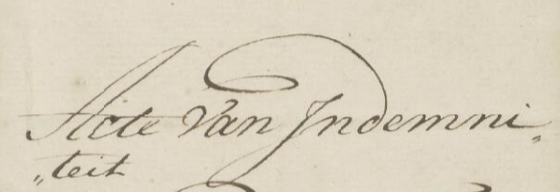 Acte van Indemni„
„teit